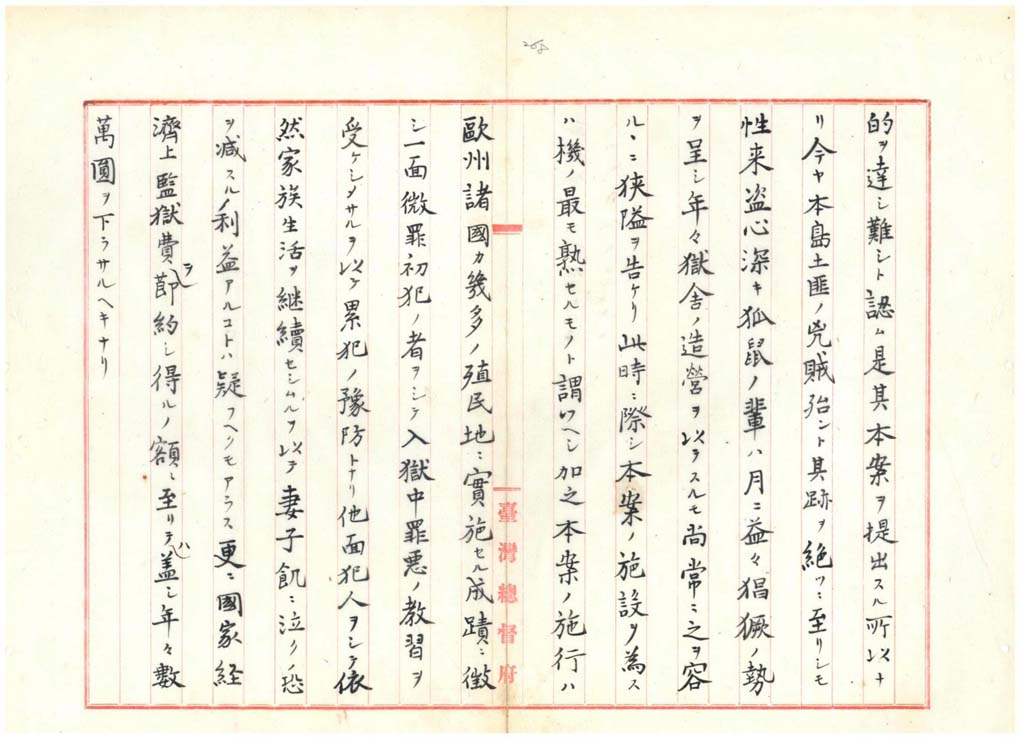 268
的ヲ達シ難シト認ム是其本案ヲ提出スル所以ナ
リ今ヤ本島土匪ノ兇賊殆ント其跡ヲ絶ツニ至リシモ
性来盗心深キ狐鼠ノ輩ハ月ニ益々猖獗ノ勢
ヲ呈シ年々獄舎ノ造営ヲ以テスルモ尚常ニ之ヲ容
ルヽニ狭隘ヲ告ケリ此時ニ際シ本案ノ施設ヲ為ス
ハ機ノ最モ熟セルモノト謂ツヘシ加之本案ノ施行ハ
臺灣總督府
歐州諸國カ幾多ノ殖民地ニ實施セル成蹟ニ徴
シ一面微罪初犯ノ者ヲシテ入獄中罪悪ノ教習ヲ
受ケシメサルヲ以テ累犯ノ豫防トナリ他面犯人ヲシテ依
然家族生活ヲ継續セシムルヲ以テ妻子飢ニ泣クノ恐
ヲ減スルノ利益アルコトハ疑フヘクモアラス更ニ國家経
濟上監獄費ヲ節約シ得ルノ額ニ至リテハ盖シ年々數
萬圓ヲ下ラサルヘキナリ